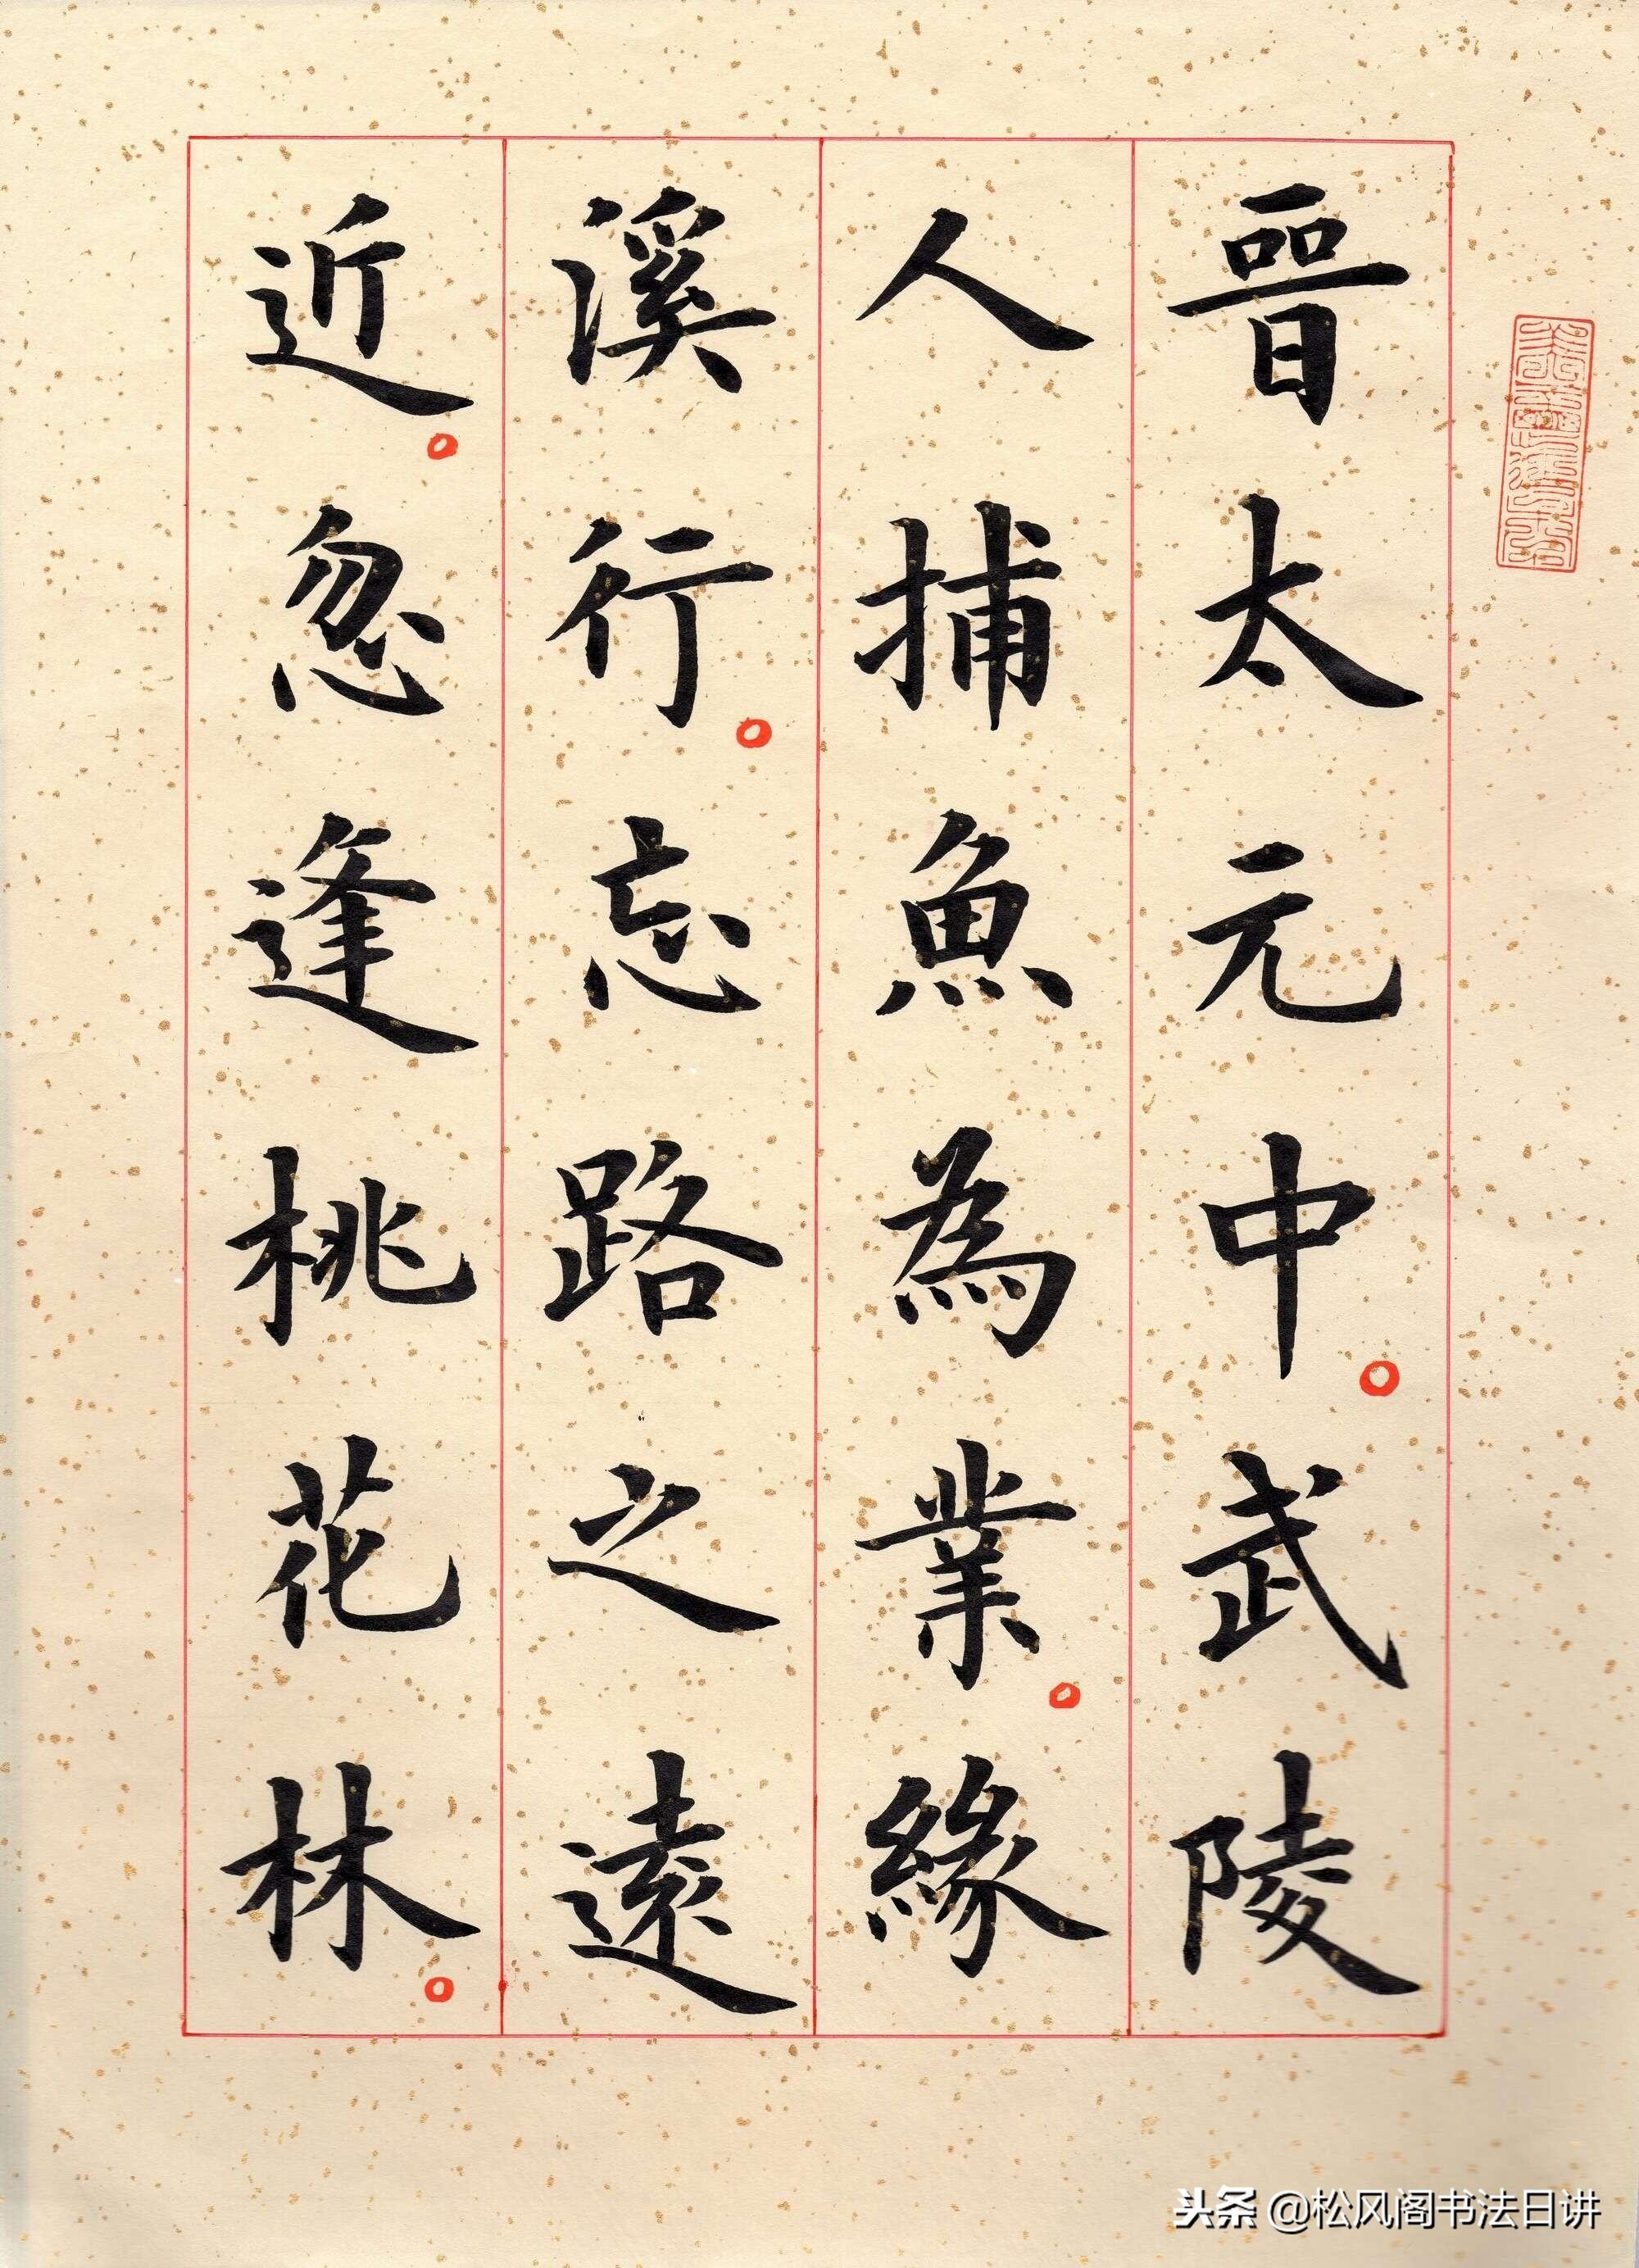 晉太元中。武陵
人捕魚為業。緣
溪行。忘路之遠
近。忽逢桃花林。
头条 @松风阁书法日讲